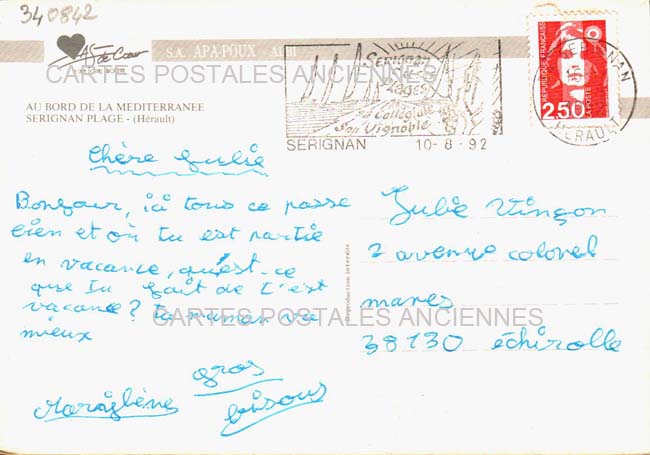 340842
As de Cœur
S.A. APA-POUX - ALBI
CARTES POSTALES ANCIENNES
AU BORD DE LA MEDITERRANEE
SERIGNAN PLAGE - (Hérault)
Serignan
ses Plages
sa Collégiale
son Vignoble
SERIGNAN 10-8-92
SERIGNAN
HERAULT
REPUBLIQUE FRANÇAISE
LA POSTE
2,50
Chère Julie
Bonjour, ici tous ce passe
bien et où tu est partie
en vacance, qu'est-ce
que tu fait de t'est
vacance? ta maman va
mieux
gros
bisous
Reproduction interdite
Julie Vinçon
2 avenue colonel
manes
38130 échirolle
CARTES POSTALES ANCIENNES